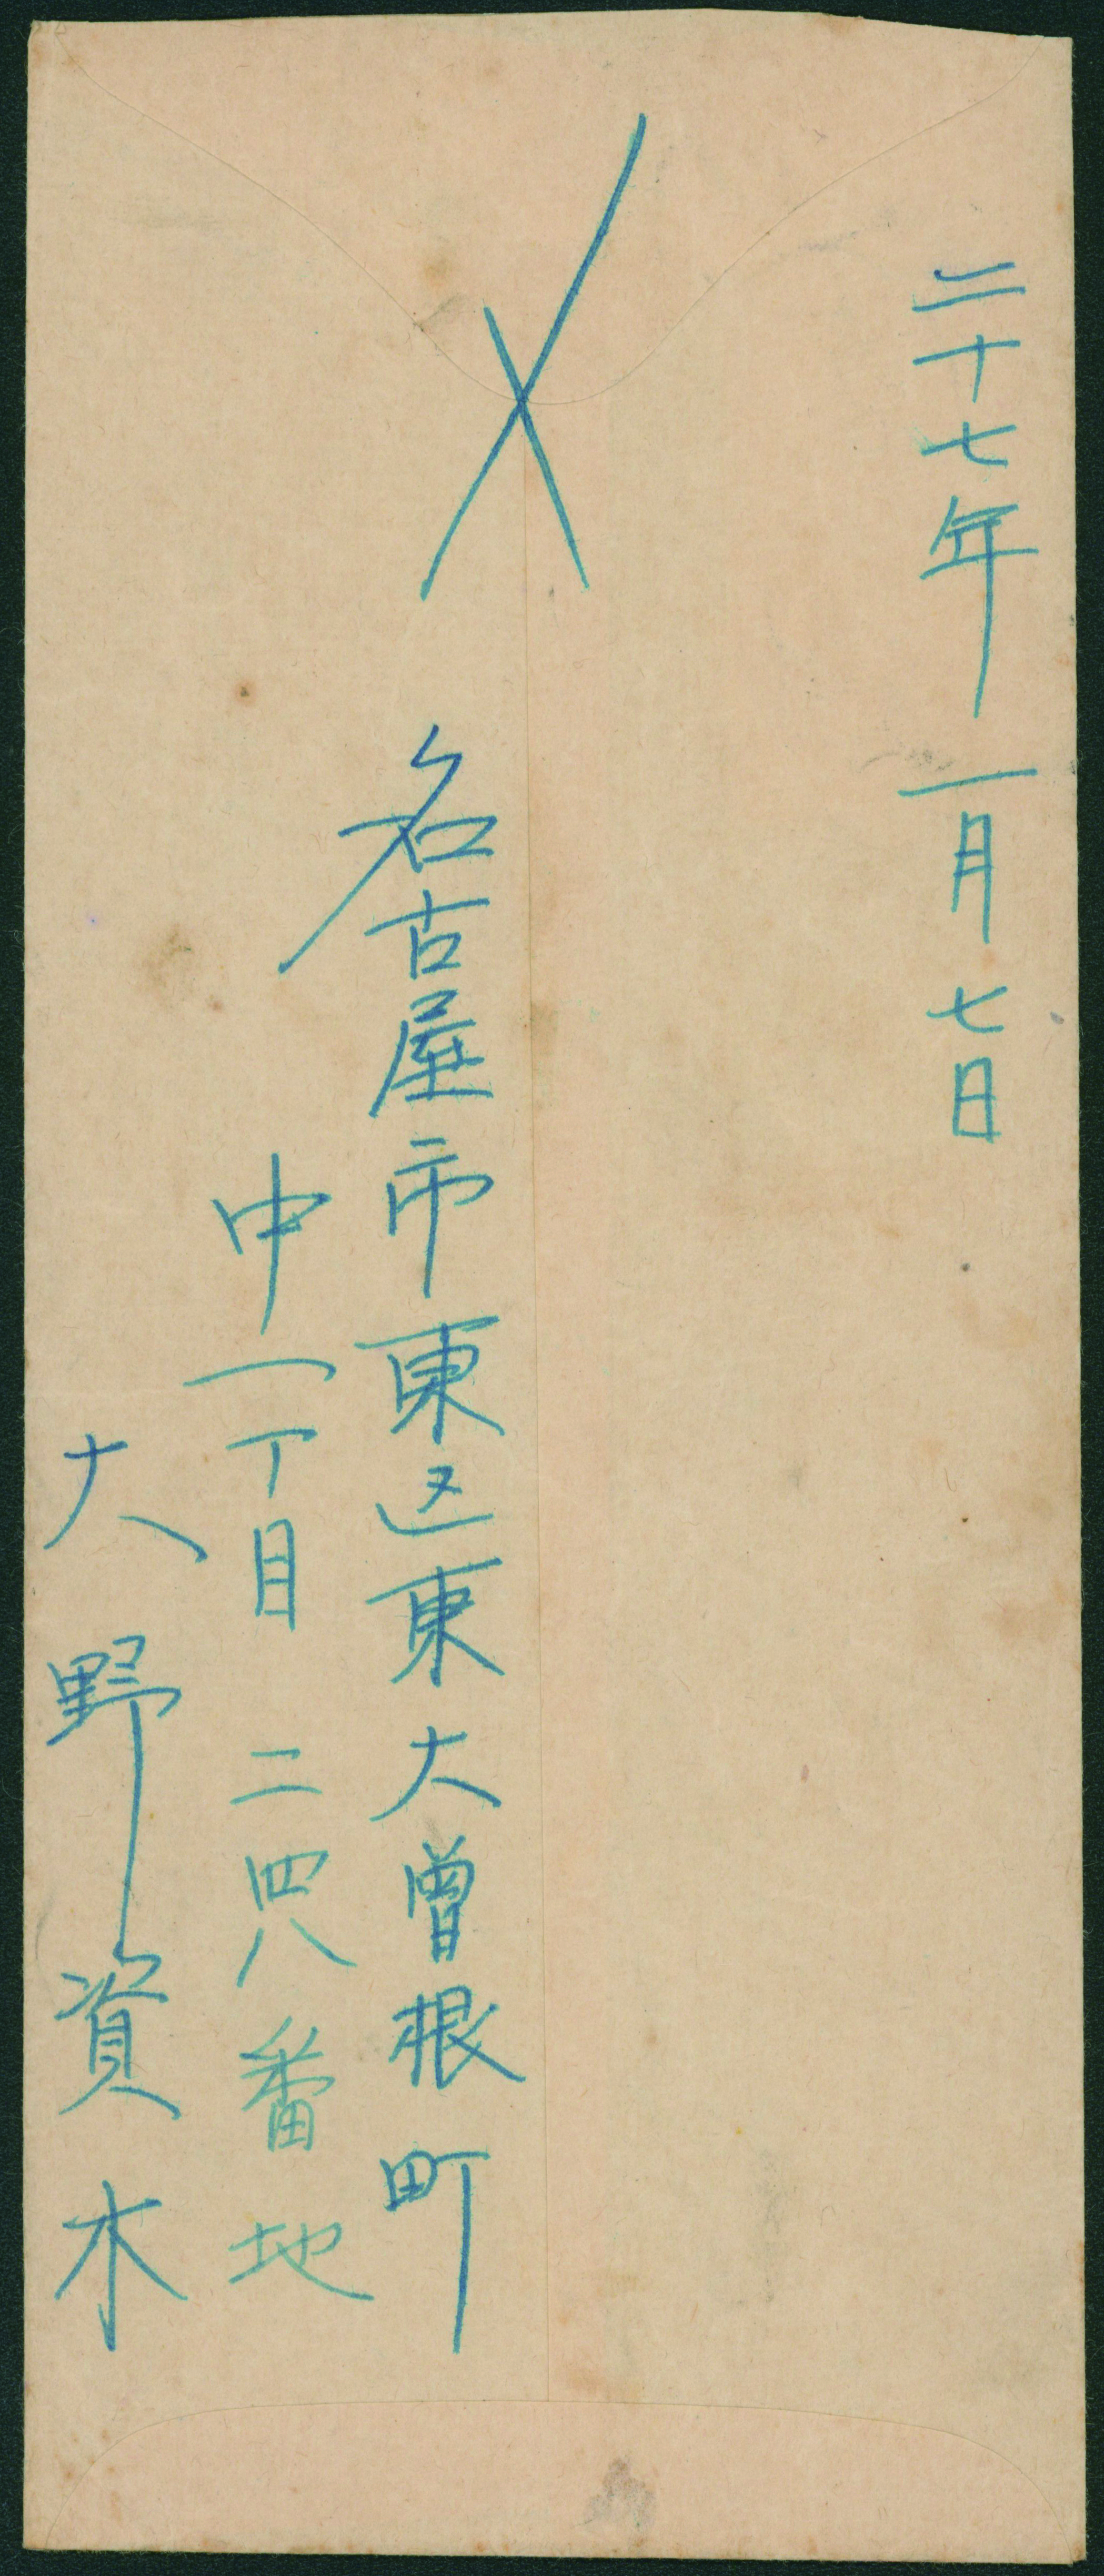 二十七年一月七日
名古屋市東区東大曽根町
中一丁目二四八番地
大野資木